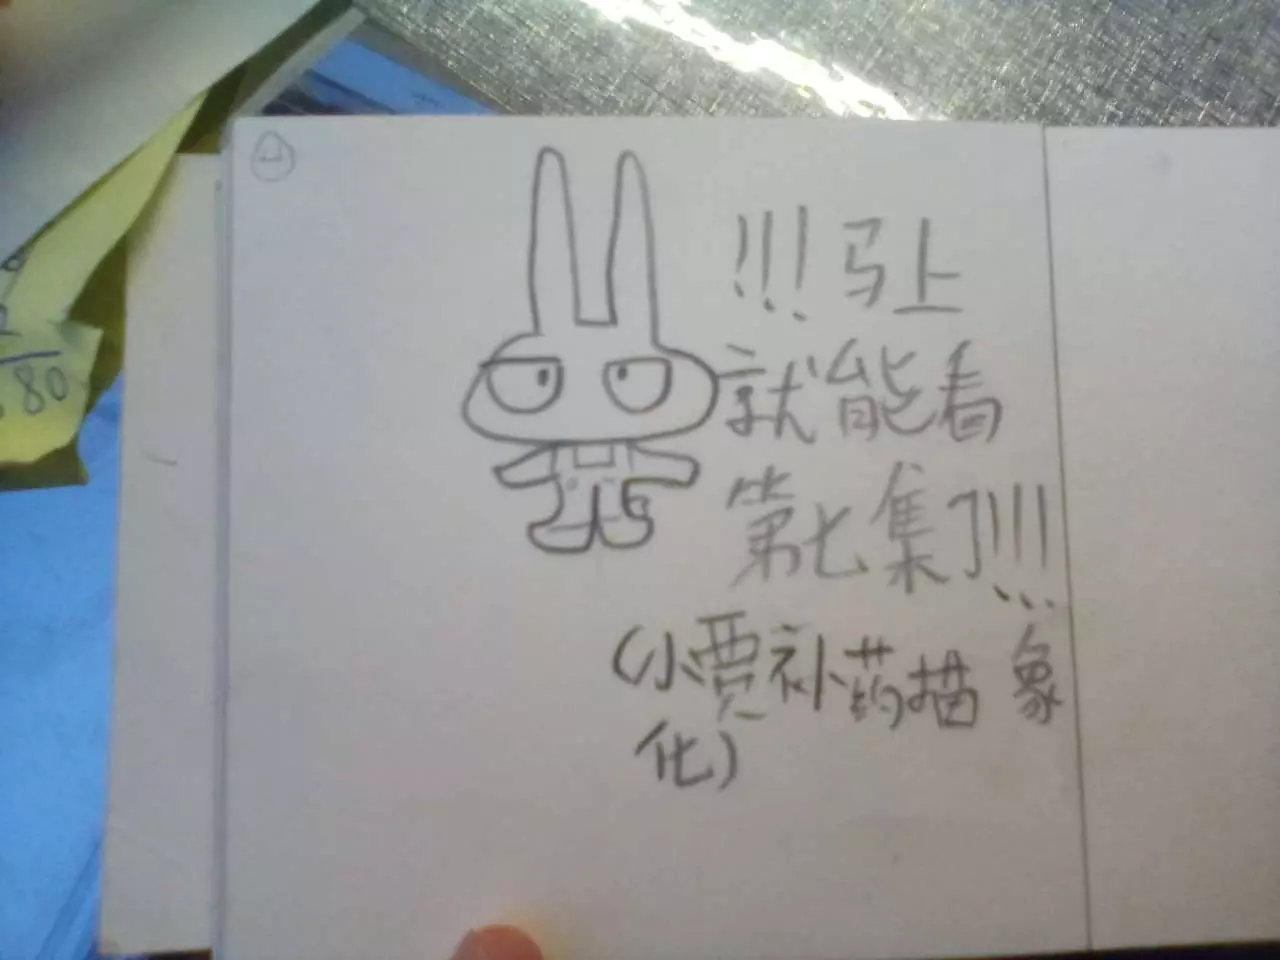 !!!马上
就能看
第七集了!!!
(小贾补药描象
化)
80